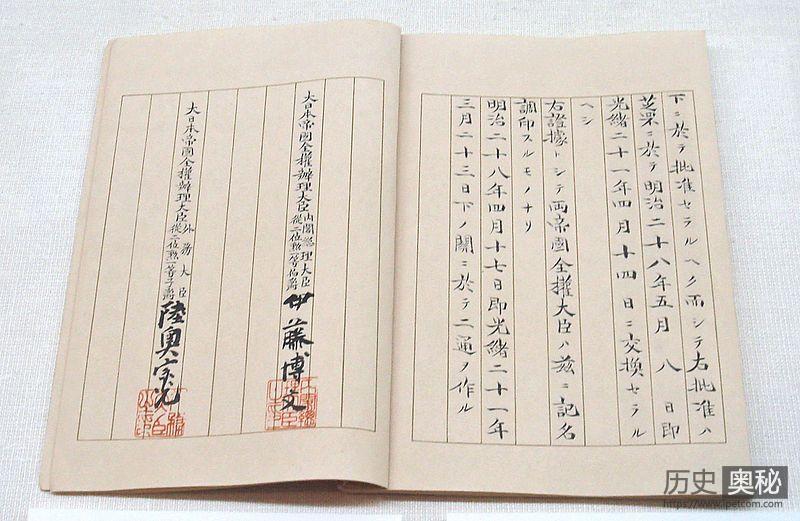 下ニ於テ批准セラルヘク而シテ右批准ハ
芝罘ニ於テ明治二十八年五月八日即
光緒二十一年四月十四日ニ交換セラル
ヘシ
右證據トシテ両帝國全權大臣ハ茲ニ記名
調印スルモノナリ
明治二十八年四月十七日即光緒二十一年
三月二十三日下ノ關ニ於テ二通ヲ作ル
大日本帝國全權辦理大臣內閣總理大臣從二位勲一等伯爵伊藤博文
大日本帝國全權辦理大臣外務大臣從二位勲一等子爵陸奥宗光
历史奥秘
https://www.lpetcom.com